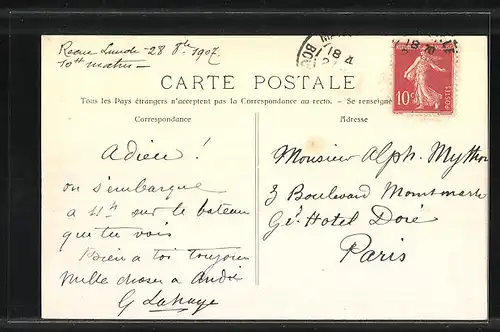 28 8bre 1907.
10h matin —
18
CARTE POSTALE
10c
POSTES
Tous les Pays étrangers n'acceptent pas la Correspondance au recto. — Se renseigne
Correspondance
Adresse
Adieu !
on s'embarque
a 11h sur le bateau
que tu vois
Bien a toi toujours
Mille choses a André
G Lahaye
Monsieur Alph.
3 Boulevard Montmartre
Gd Hotel Doré
Paris